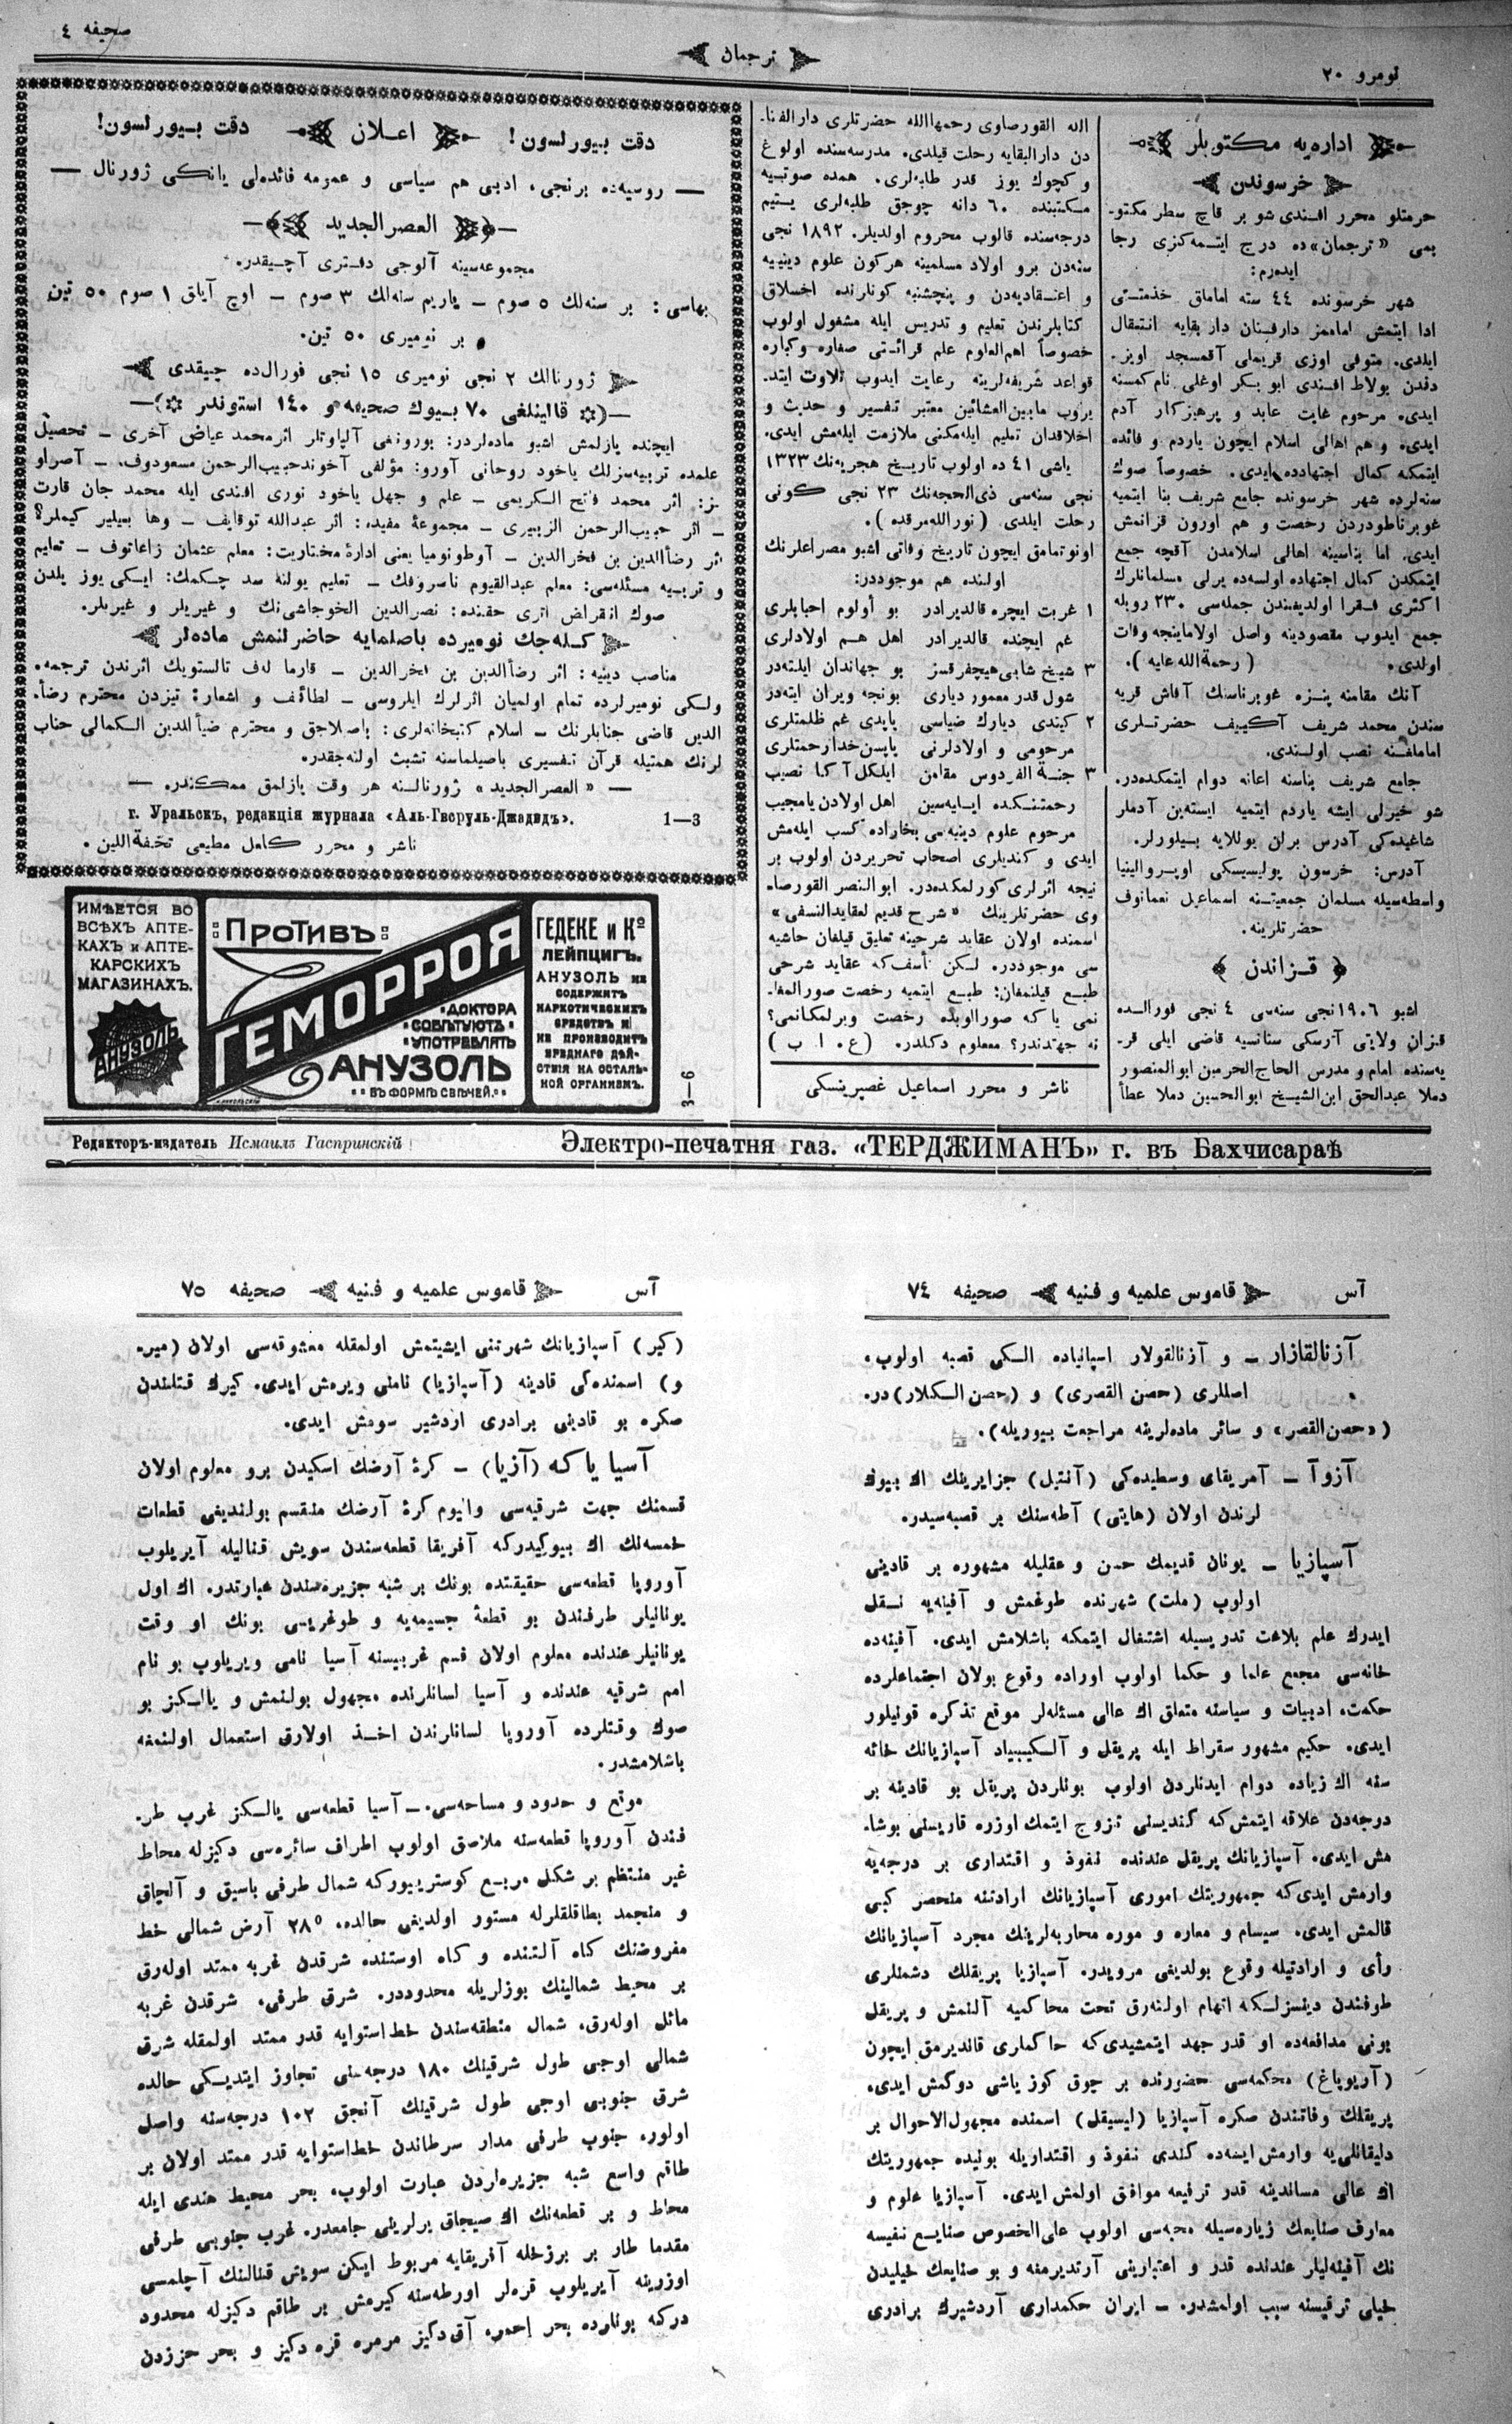 نومرو ٢٠
ترجمان
صحيفه ٤
اداره‌يه مكتوبلر
خرسوندن
حرمتلو محرر افندی شو بر قاچ سطر مكتو-
بمی «ترجمان» ده درج ايتمه‌كزی رجا
ايدەرم:
شهر خرسونده ٤٤ سنه اماملق خذمتنی
ادا ايتمش اماممز دارفناندن داربقايه انتقال
ايلدی. متوفی اوزی قريملی آقمسجد اويز-
دندن بولاط افندی ابو بكر اوغلی نام كمسنه
ايدی. مرحوم غايت عابد و پرهيزكار آدم
ايدی، و هم اهالی اسلام ايچون ياردم و فائده
ايتمكه كمال اجتهادده ايدی. خصوصاً صوك
سنه‌لرده شهر خرسونده جامع شريف بنا ايتميه
غوبرناطوردن رخصت و هم اورون قزانمش
ايدی. اما بناسينه اهالی اسلامدن آقچه جمع
ايتمكدن كمال اجتهاده اولسه‌ده يرلی مسلمانلرك
اكثری فقرا اولديغندن جمله‌سی ٢٣٠ روبله
جمع ايدوب مقصودينه واصل اولاماينجه وفات
اولدی. (رحمة‌الله عليه).
آنك مقامنه پنزه غوبرناسنك آقاش قريه
سندن محمد شريف آكييف حضرتلری
اماملغنه نصب اولندی.
جامع شريف بناسنه اعانه دوام ايتمكده‌در.
شو خيرلی ايشه ياردم ايتميه ايسته‌ين آدملر
شاغيده‌كی آدرس برلن يوللايه بيلورلر.
آدرس: خرسون پوليسيسكی اوپروالينيا
واسطه‌سيله مسلمان جمعيتنه اسماعيل نعمانوف
حضرتلرينه.
قزاندن
اشبو ١٩٠٦نجی سنه‌سی ٤ نجی فورالده
قزان ولايتی آرسكی ستانسيه قاضی ايلی قر-
يه‌سنده امام و مدرس الحاج‌الحرمين ابوالمنصور
دملا عبدالحق ابن‌الشيخ ابوالحسين دملا عطاً
الله القورصاوی رحمهاالله حضرتلری دارالفنا-
دن دارالبقايه رحلت قيلدی. مدرسه‌سنده اولوغ
و كچوك يوز قدر طلبه‌لری. همده صوتيه
مكتبنده ٦٠ دانه چوجق طلبه‌لری يتيم
درجه‌سنده قالوب محروم اولديلر. ١٨٩٢ نجی
سنه‌دن برو اولاد مسلمينه هركون علوم دينييه
و اعتقاديه‌دن و پنچشنبه كونلرنده اخسلاق
كتابلرندن تعليم و تدريس ايله مشغول اولوب
خصوصاً اهم‌العلوم علم قرائتی صغاره وكباره
قواعد شريفه‌لرينه رعايت ايدوب تلاوت ايتد-
يروب مابين‌العشائين معتبر تفسير و حديث و
اخلاقدان تعليم ايله‌مكنی ملازمت ايله‌مش ايدی.
ياشی ٤١ ده اولوب تاريخ هجريه‌نك ١٣٢٣
نجی سنه‌سی ذی‌الحجه‌نك ٢٣ نجی كونی
رحلت ايلدی (نورالله مرقده).
اونوتمامق ايچون تاريخ وفاتی اشبو مصراعلرنك
اولنده هم موجوددر:
١ غربت ايچره قالديرادر بو أولوم احبابلری
غم ايچنده قالديرادر اهل هم اولادلری
٣ شيخ شابی هيچفرقسز بو جهاندان ايلته‌در
شول قدر معمور دياری بونجه ويران ايته‌در
٢ كيتدی ديارك ضياسی ياپدی غم ظلمتلری
مرحومی و اولادلرنی ياپسن خدا رحمتلری
٣ جنة‌الفردوس مقامن ايلكل آكا نصيب
رحمتنكده ايله‌يه‌سين اهل اولادن يامجيب
مرحوم علوم دينيه‌يی بخاراده كسب ايله‌مش
ايدی و كنديلری اصحاب تحريردن اولوب بر
نيچه اثرلری كورلمكده‌در. ابوالنصر القورصا-
وی حضرتلرينك «شرح قديم لعقايدالنسفی»
اسمنده اولان عقايد شرحينه تعليق قيلغان حاشيه
سی موجوددر. لكن تأسف‌كه عقايد شرحی
طبع قيلنمغان: طبع ايتميه رخصت صورالما-
نمی ياكه صورالوبده رخصت ويرلمكانمی؟
نه جهتدندر؟ معلوم دكلدر. (ع. ا ب)
ناشر و محرر اسماعيل غصپرينسكی
دقت بيورلسون! اعلان دقت بيورلسون!
— روسيه‌ده برنجی، ادبی هم سياسی و عمومه فائده‌لی يانكی ژورنال —
العصرالجديد
مجموعه‌سينه آلوجی دفتری آچيقدر.
بهاسی: بر سنه‌لك ٥ صوم — ياريم سنه‌لك ٣ صوم — اوچ آيلق ١ صوم ٥٠ تين
بر نوميری ٥٠ تين.
ژورنالك ٢ نجی نوميری ١٥ نجی فورالده چيقدی
—(قالينلغی ٧٠ بيوك صحيفه و ١٤٠ استوندر)—
ايچنده يازلمش اشبو ماده‌لردر: بورونغی آلپاوتلر اثرمحمد عياض آخری — تحصيل
علمده تربيه‌سزلك ياخود روحانی آورو: مؤلفی آخوند حبيب‌الرحمن مسعودوف. — آصراو
نز: اثر محمد فاتح الكريمی — علم و جهل ياخود نوری افندی ايله محمد جان قارت
— اثر حبيب‌الرحمن الزبيری — مجموعۀ مفيده: اثر عبدالله توقايف — وها بيلير كيملر؟
اثر رضأالدين بن فخرالدين — آوطونوميا يعنی ادارۀ مختاريت: معلم عثمان زاغاتوف — تعليم
و تربيه مسئله‌سی: معلم عبدالقيوم ناسروفك — تعليم يولنه سد چكمك: ايكی يوز يلدن
صوك انقراض اثری حقنده: نصرالدين الخوجاشی‌نك و غيريلر و غيريلر.
كله‌جك نوميرده باصلمايه حاضرلنمش ماده‌لر
مناصب دينيه: اثر رضأالدين بن فخرالدين — قارما له‌ف تالستويك اثرندن ترجمه.
ولكی نوميرلرده تمام اولميان اثرلرك ايلروسی — لطائف و اشعار: تيزدن محترم رضأ-
الدين قاضی جنابلرنك — اسلام كتبخانه‌لری: باصلاجق و محترم ضيأالدين الكمالی جناب
لرنك همتيله قرآن تفسيری باصيلماسنه تشبث اولنه‌جقدر.
— «العصرالجديد» ژورنالنه هر وقت يازلمق ممكندر. —
г. Уральскъ, редакція журнала «Аль-Гвсруль-Джадидъ». 1—3
ناشر و محرر كامل مطيعی تحفة‌اللين.
ИМѢЕТСЯ ВО
ВСѢХЪ АПТЕ-
КАХЪ и АПТЕ-
КАРСКИХЪ
МАГАЗИНАХЪ.
АНУЗОЛЬ
ПРОТИВЪ
ГЕМОРРОЯ
ДОКТОРА
СОВѢТУЮТЪ
УПОТРЕБЛЯТЬ
АНУЗОЛЬ
ВЪ ФОРМѢ СВѢЧЕЙ.
ГЕДЕКЕ и Кº
ЛЕЙПЦИГЪ.
АНУЗОЛЬ НЕ
СОДЕРЖИТЪ
НАРКОТИЧЕСКИХЪ
СРЕДСТВЪ И
НЕ ПРОИЗВОДИТЪ
ВРЕДНАГО ДѢЙ-
СТВІЯ НА ОСТАЛЬ-
НОЙ ОРГАНИЗМЪ.
3—6
Редакторъ-издатель Исмаилъ Гаспринскій
Электро-печатня газ. «ТЕРДЖИМАНЪ» г. въ Бахчисараѣ
آس قاموس علميه و فنيه صحيفه ٧٤
آزنالقازار — و آزنالقولار اسپانياده ايكی قصبه اولوب،
اصللری (حصن القصری) و (حصن الكلار) در.
(«حصن‌القصر» و سائر ماده‌لرينه مراجعت بيوريله).
آزوآ — آمريقای وسطيده‌كی (آنتيل) جزايرينك اك بيوك
لرندن اولان (هايتی) آطه‌سنك بر قصبه‌سيدر.
آسپازيا — يونان قديمك حسن و عقليله مشهوره بر قادينی
اولوب (ملت) شهرنده طوغمش و آفينه‌يه نقل
ايدرك علم بلاغت تدريسيله اشتغال ايتمكه باشلامش ايدی. آفينه‌ده
خانه‌سی مجمع علما و حكما اولوب اوراده وقوع بولان اجتماعلرده
حكمت، ادبيات و سياسته متعلق اك عالی مسئله‌لر موقع تذكره قونيلور
ايدی. حكيم مشهور سقراط ايله پريقل و آلكيبياد آسپازيانك خانه
سنه اك زياده دوام ايدنلردن اولوب بونلردن پريقل بو قادينه بر
درجه‌دن علاقه ايتمش‌كه كنديسنی تزوج ايتمك اوزره قاريسنی بوشا-
مش ايدی. آسپازيانك پريقل عندنده نفوذ و اقتداری بر درجه‌يه
وارمش ايدی‌كه جمهوريتك اموری آسپازيانك ارادتنه منحصر كبی
قالمش ايدی. سيسام و معاره و موره محاربه‌لرينك مجرد آسپازيانك
رأی و ارادتيله وقوع بولديغی مرويدر. آسپازيا پريقلك دشمنلری
طرفندن دينسزلكه اتهام اولنه‌رق تحت محاكميه آلنمش و پريقل
بونی مدافعه‌ده او قدر جهد ايتمشيدی‌كه حاكملری قانديرمق ايچون
(آريوپاغ) محكمه‌سی حضورنده بر چوق كوز ياشی دوكمش ايدی.
پريقلك وفاتندن صكره آسپازيا (ليسيقل) اسمنده مجهول‌الاحوال بر
دليقانلی‌يه وارمش ايسه‌ده كندی نفوذ و اقتداريله بونيده جمهوريتك
اك عالی مسانديه قدر ترفيعه موافق اولمش ايدی. آسپازيا علوم و
معارف صنايعك زياده‌سيله محبه‌سی اولوب علی‌الخصوص صنايع نفيسه
نك آفينه‌ليلر عندنده قدر و اعتبارينی آرتديرمغه و بو صنايعك خيليدن
خيلی ترقيسنه سبب اولمشدر. — ايران حكمداری آردشيرك برادری
آس قاموس علميه و فنيه صحيفه ٧٥
(كير) آسپازيانك شهرتنی ايشيتمش اولمقله معشوقه‌سی اولان (مير-
و) اسمنده‌كی قادينه (آسپازيا) نامنی ويرمش ايدی. كيرك قتلندن
صكره بو قادينی برادری اردشير سومش ايدی.
آسيا ياكه (آزيا) — كرۀ آرضك اسكيدن برو معلوم اولان
قسمنك جهت شرقيه‌سی واليوم كرۀ آرضك منقسم بولنديغی قطعات
خمسه‌نك اك بيوكيدركه آفريقا قطعه‌سندن سويش قناليله آيريلوب
آوروپا قطعه‌سی حقيقتده بونك بر شبه جزيره‌سندن عبارتدر. اك اول
يونانيلر طرفندن بو قطعۀ جسيمه‌يه و طوغريسی بونك او وقت
يونانيلر عندنده معلوم اولان قسم غربيسنه آسيا نامی ويريلوب بو نام
امم شرقيه عندنده و آسيا لسانلرنده مجهول بولنمش و يالكز بو
صوك وقتلرده آوروپا لسانلرندن اخذ اولارق استعمال اولنمغه
باشلامشدر.
موقع و حدود و مساحه‌سی. — آسيا قطعه‌سی يالكز غرب طر-
فندن آوروپا قطعه‌سنه ملاصق اولوب اطراف سائره‌سی دكيزله محاط
غير منتظم بر شكل مربع كوستريیوركه شمال طرفی باسيق و آلچاق
و منجمد بطاقلقلرله مستور اولديغی حالده، ٢٨° آرض شمالی خط
مفروضنك كاه آلتنده و كاه اوستنده شرقدن غربه ممتد اوله‌رق
بر محيط شمالينك بوزلريله محدوددر. شرق طرفی، شرقدن غربه
مائل اوله‌رق، شمال منطقه‌سندن خط استوايه قدر ممتد اولمقله شرق
شمالی اوجی طول شرقينك ١٨٠ درجه‌سنی تجاوز ايتديكی حالده
شرق جنوبی اوجی طول شرقينك آنجق ١٠٢ درجه‌سنه واصل
اولور. جنوب طرفی مدار سرطاندن خط‌استوايه قدر ممتد اولان بر
طاقم واسع شبه جزيره‌لردن عبارت اولوب، بحر محيط هندی ايله
محاط و بر قطعه‌نك اك صيجاق يرلرينی جامعدر. غرب جنوبی طرفی
مقدما طار بر برزخله آفريقايه مربوط ايكن سويش قنالنك آچلمسی
اوزرينه آيريلوب قره‌لر اورطه‌سنه كيرمش بر طاقم دكيزله محدود
دركه بونلرده بحر احمر، آق دكيز مرمره قره دكيز و بحر خزردن